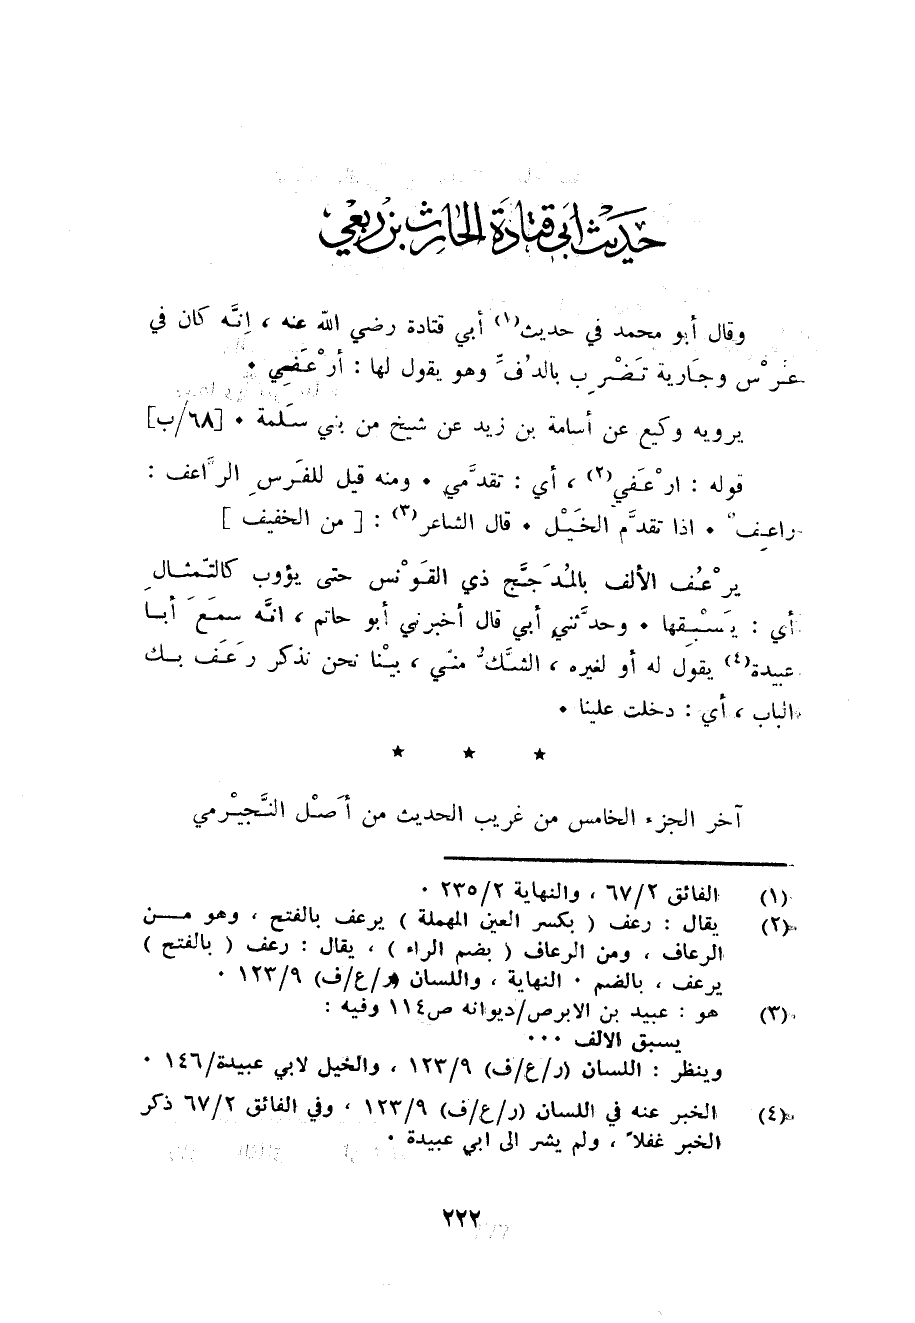 حديث أبي قتادة الحارث بن ربعي
وقال أبو محمد في حديث(١) أبي قتادة رضي الله عنه ، إنَّه كان في
عُرْس وجَارية تَضْرِب بالدُفِّ وهو يقول لها : أرْعَفي ٠
يرويه وكيع عن أسامة بن زيد عن شيخ من بني سَلمة ٠ [٦٨/ب]
قوله : ارْعَفي(٢) ، أي : تقدَّمي ٠ ومنه قيل للفَرسِ الرَّاعف :
راعِف ٠ اذا تقدَّم الخَيْل ٠ قال الشاعر(٣) : [ من الخفيف ]
يرْعُف الألف بالمُدَجَّج ذي القَوْنس حتى يؤوب كالتّمثالِ
أي : يَسْبِقها ٠ وحدَّثني أبي قال أخبرني أبو حاتم ، انَّه سمَعَ أبا
عبيدة(٤) يقول له أو لغيره ، الشكُّ منّي ، بيْنا نحن نذكر رَعَف بك
الباب ، أي : دخلت علينا ٠
★ ★ ★
آخر الجزء الخامس من غريب الحديث من أَصْل النَّجيْرمي
(١) الفائق ٦٧/٢ ، والنهاية ٢٣٥/٢ ٠
(٢) يقال : رعف ( بكسر العين المهملة ) يرعف بالفتح ، وهو من
الرعاف ، ومن الرعاف ( بضم الراء ) ، يقال : رعف ( بالفتح )
يرعف ، بالضم ٠ النهاية ، واللسان (ر/ع/ف) ١٢٣/٩ ٠
(٣) هو : عبيد بن الابرص/ديوانه ص١١٤ وفيه :
يسبق الالف ٠٠٠
وينظر : اللسان (ر/ع/ف) ١٢٣/٩ ، والخيل لابي عبيدة/١٤٦ ٠
(٤) الخبر عنه في اللسان (ر/ع/ف) ١٢٣/٩ ، وفي الفائق ٦٧/٢ ذكر
الخبر غفلاً ، ولم يشر الى ابي عبيدة ٠
٢٢٢